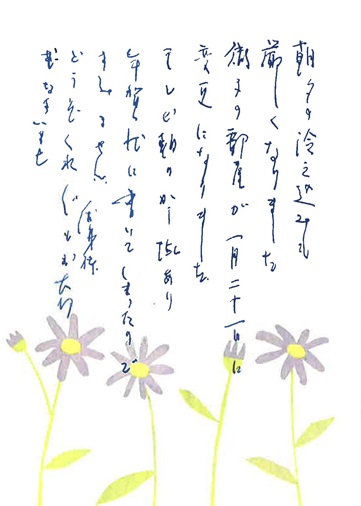 朝夕の冷え込みも
厳しくなりました
徹子の部屋が一月二十一日に
変更になりました
テレビ朝日から あり
年賀状に書いてしまったので
すみません お身体
どうぞくれぐれもお大切
なさいませ